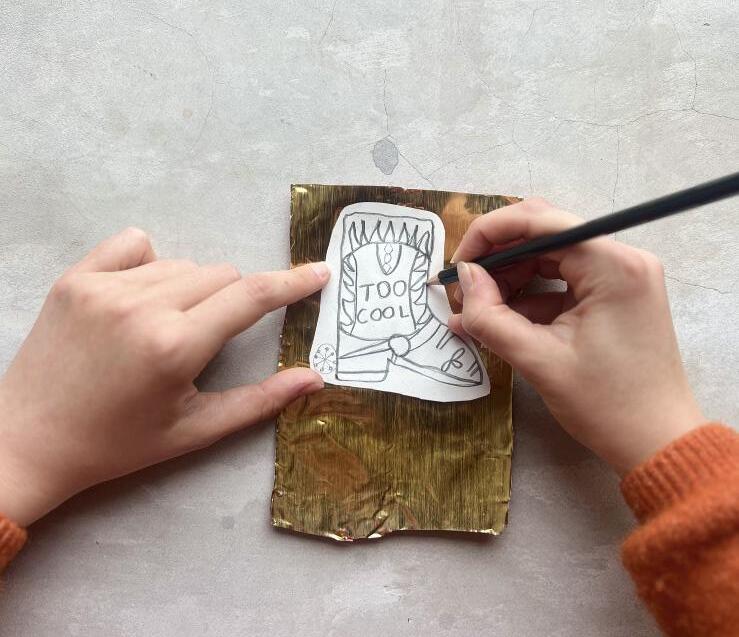 TOO
COOL